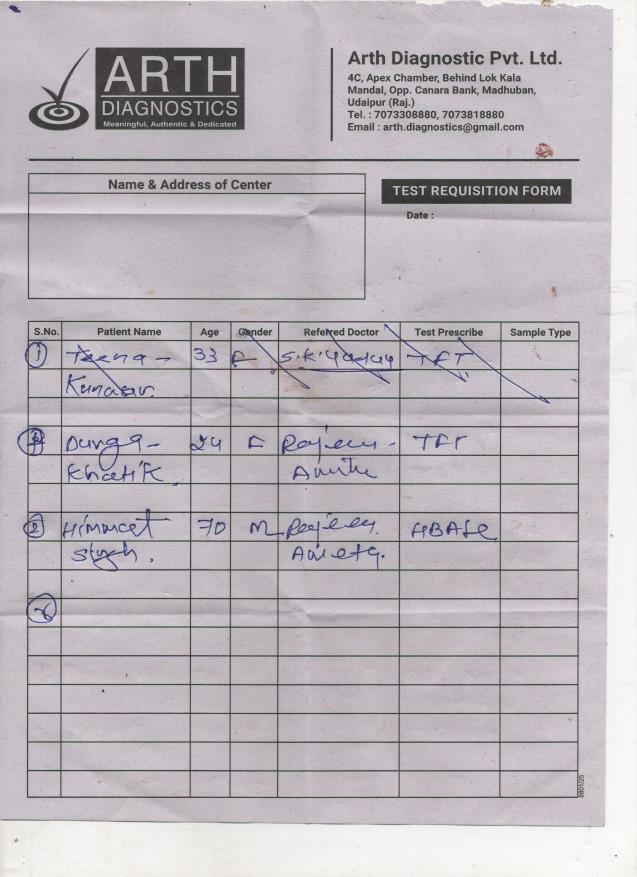 ARTH
DIAGNOSTICS
Meaningful, Authentic & Dedicated
Arth Diagnostic Pvt. Ltd.
4C, Apex Chamber, Behind Lok Kala
Mandal, Opp. Canara Bank, Madhuban,
Udaipur (Raj.)
Tel. : 7073308880, 7073818880
Email : arth.diagnostics@gmail.com
Name & Address of Center
TEST REQUISITION FORM
Date :
S.No. Patient Name Age Gender Referred Doctor Test Prescribe Sample Type
1 Teena - 33 F S.K. Yadav TFT
Durga - 24 F Rajeev - TFT
Khatik
2 Himmat 70 M Rajeev HBA1c
Singh.
8801/25